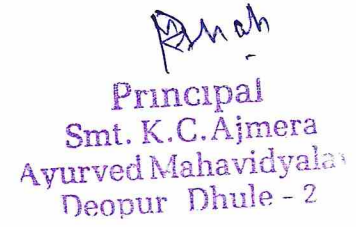 Principal
Smt. K.C.Ajmera
Ayurved Mahavidyala
Deopur Dhule - 2